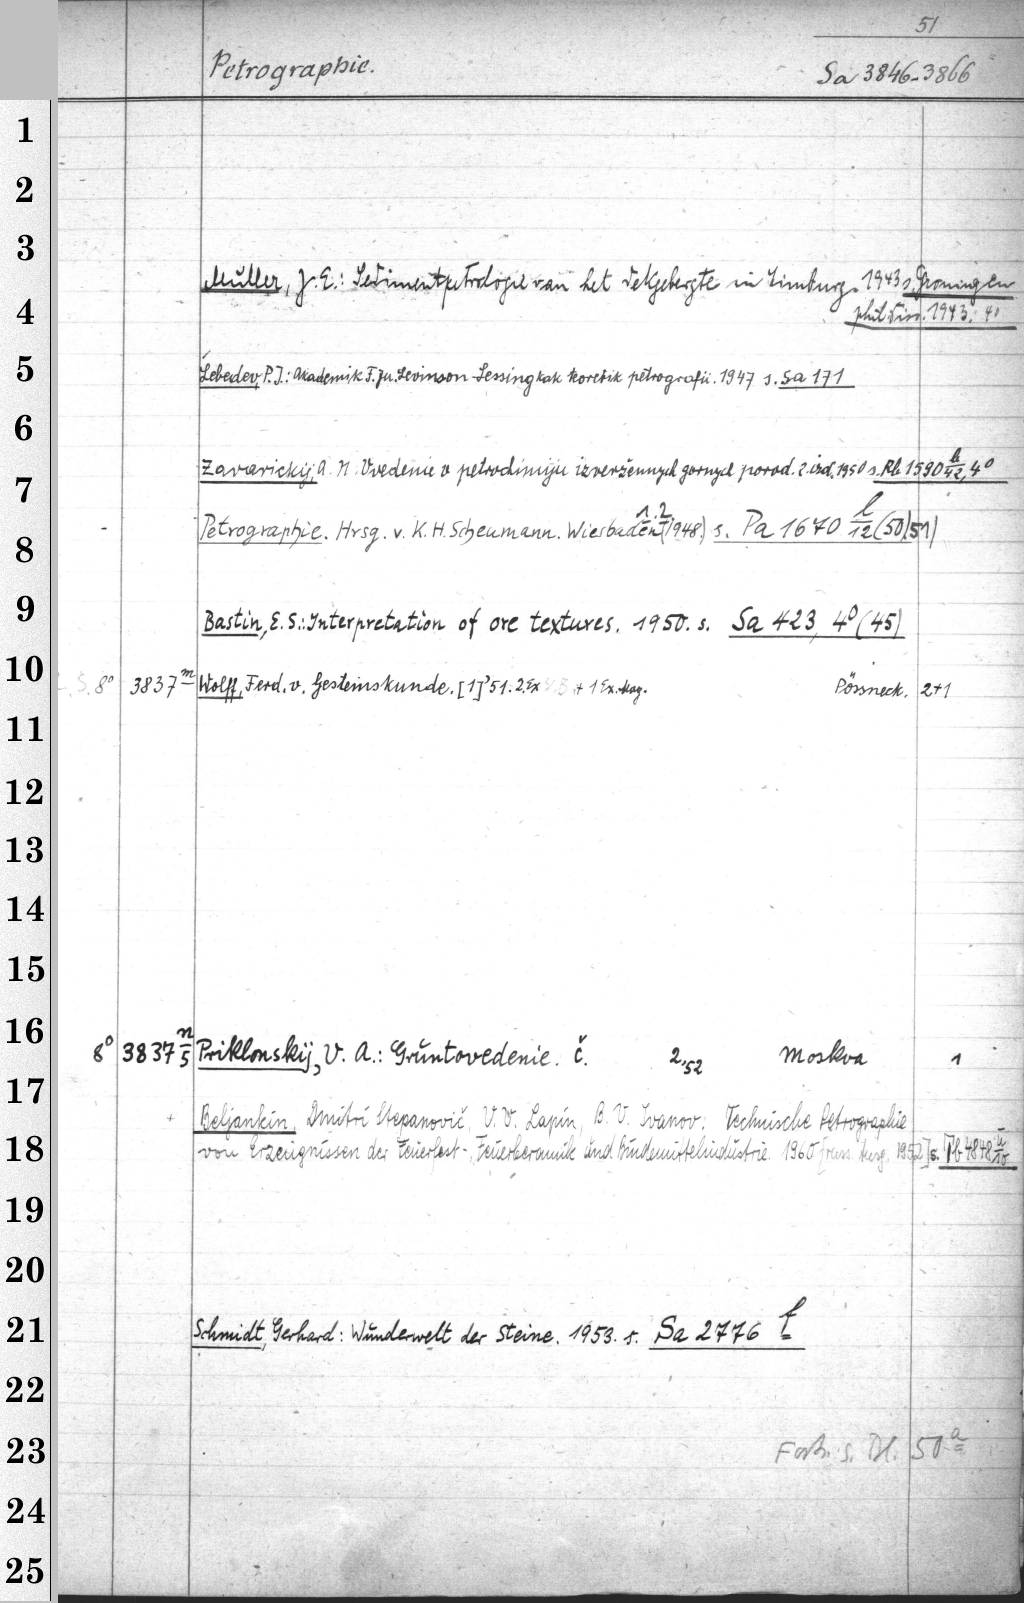 51
Petrographie.
Sa 3846-3866
1
2
3
Müller, J. E.: Sedimentpetrologie van het Dekgebergte in Limburg. 1943 s. Groningen
4
phil. Diss. 1943. 4°
5
Lebedev, P. I.: Akademik F. Ju. Levinson-Lessing kak teoretik petrografii. 1947 s. Sa 171
6
Zavarickij, A. N. Vvedenie v petrochimiju izveržennych gornych porod. 2. izd. 1950 s. Rb 1590 h/42, 4°
7
Petrographie. Hrsg. v. K. H. Scheumann. Wiesbaden 1.2 (1948) s. Pa 1670 l/12 (50)(51)
8
9
Bastin, E. S.: Interpretation of ore textures. 1950. s. Sa 423, 4° (45)
10
8° 3837 m Wolff, Ferd. v. Gesteinskunde. [1] '51. 2. Ex + 1 Ex. Mag. Pössneck. 2+1
11
12
13
14
15
16
8° 3837 n/5 Priklonskij, V. A.: Gruntovedenie. č. 2, 52 Moskva 1
17
Beljankin, Dmitri Stepanovič, V. V. Lapin, B. V. Ivanov: Technische Petrographie
18
von Erzeugnissen der Feuerfest-, Feuerkeramik und Bindemittelindustrie. 1960 [russ. Ausg. 1952] s. Tb 4848 u/10
19
20
21
Schmidt, Gerhard: Wunderwelt der Steine. 1953. s. Sa 2776 f
22
23
Forts. s. Bl. 50 a
24
25